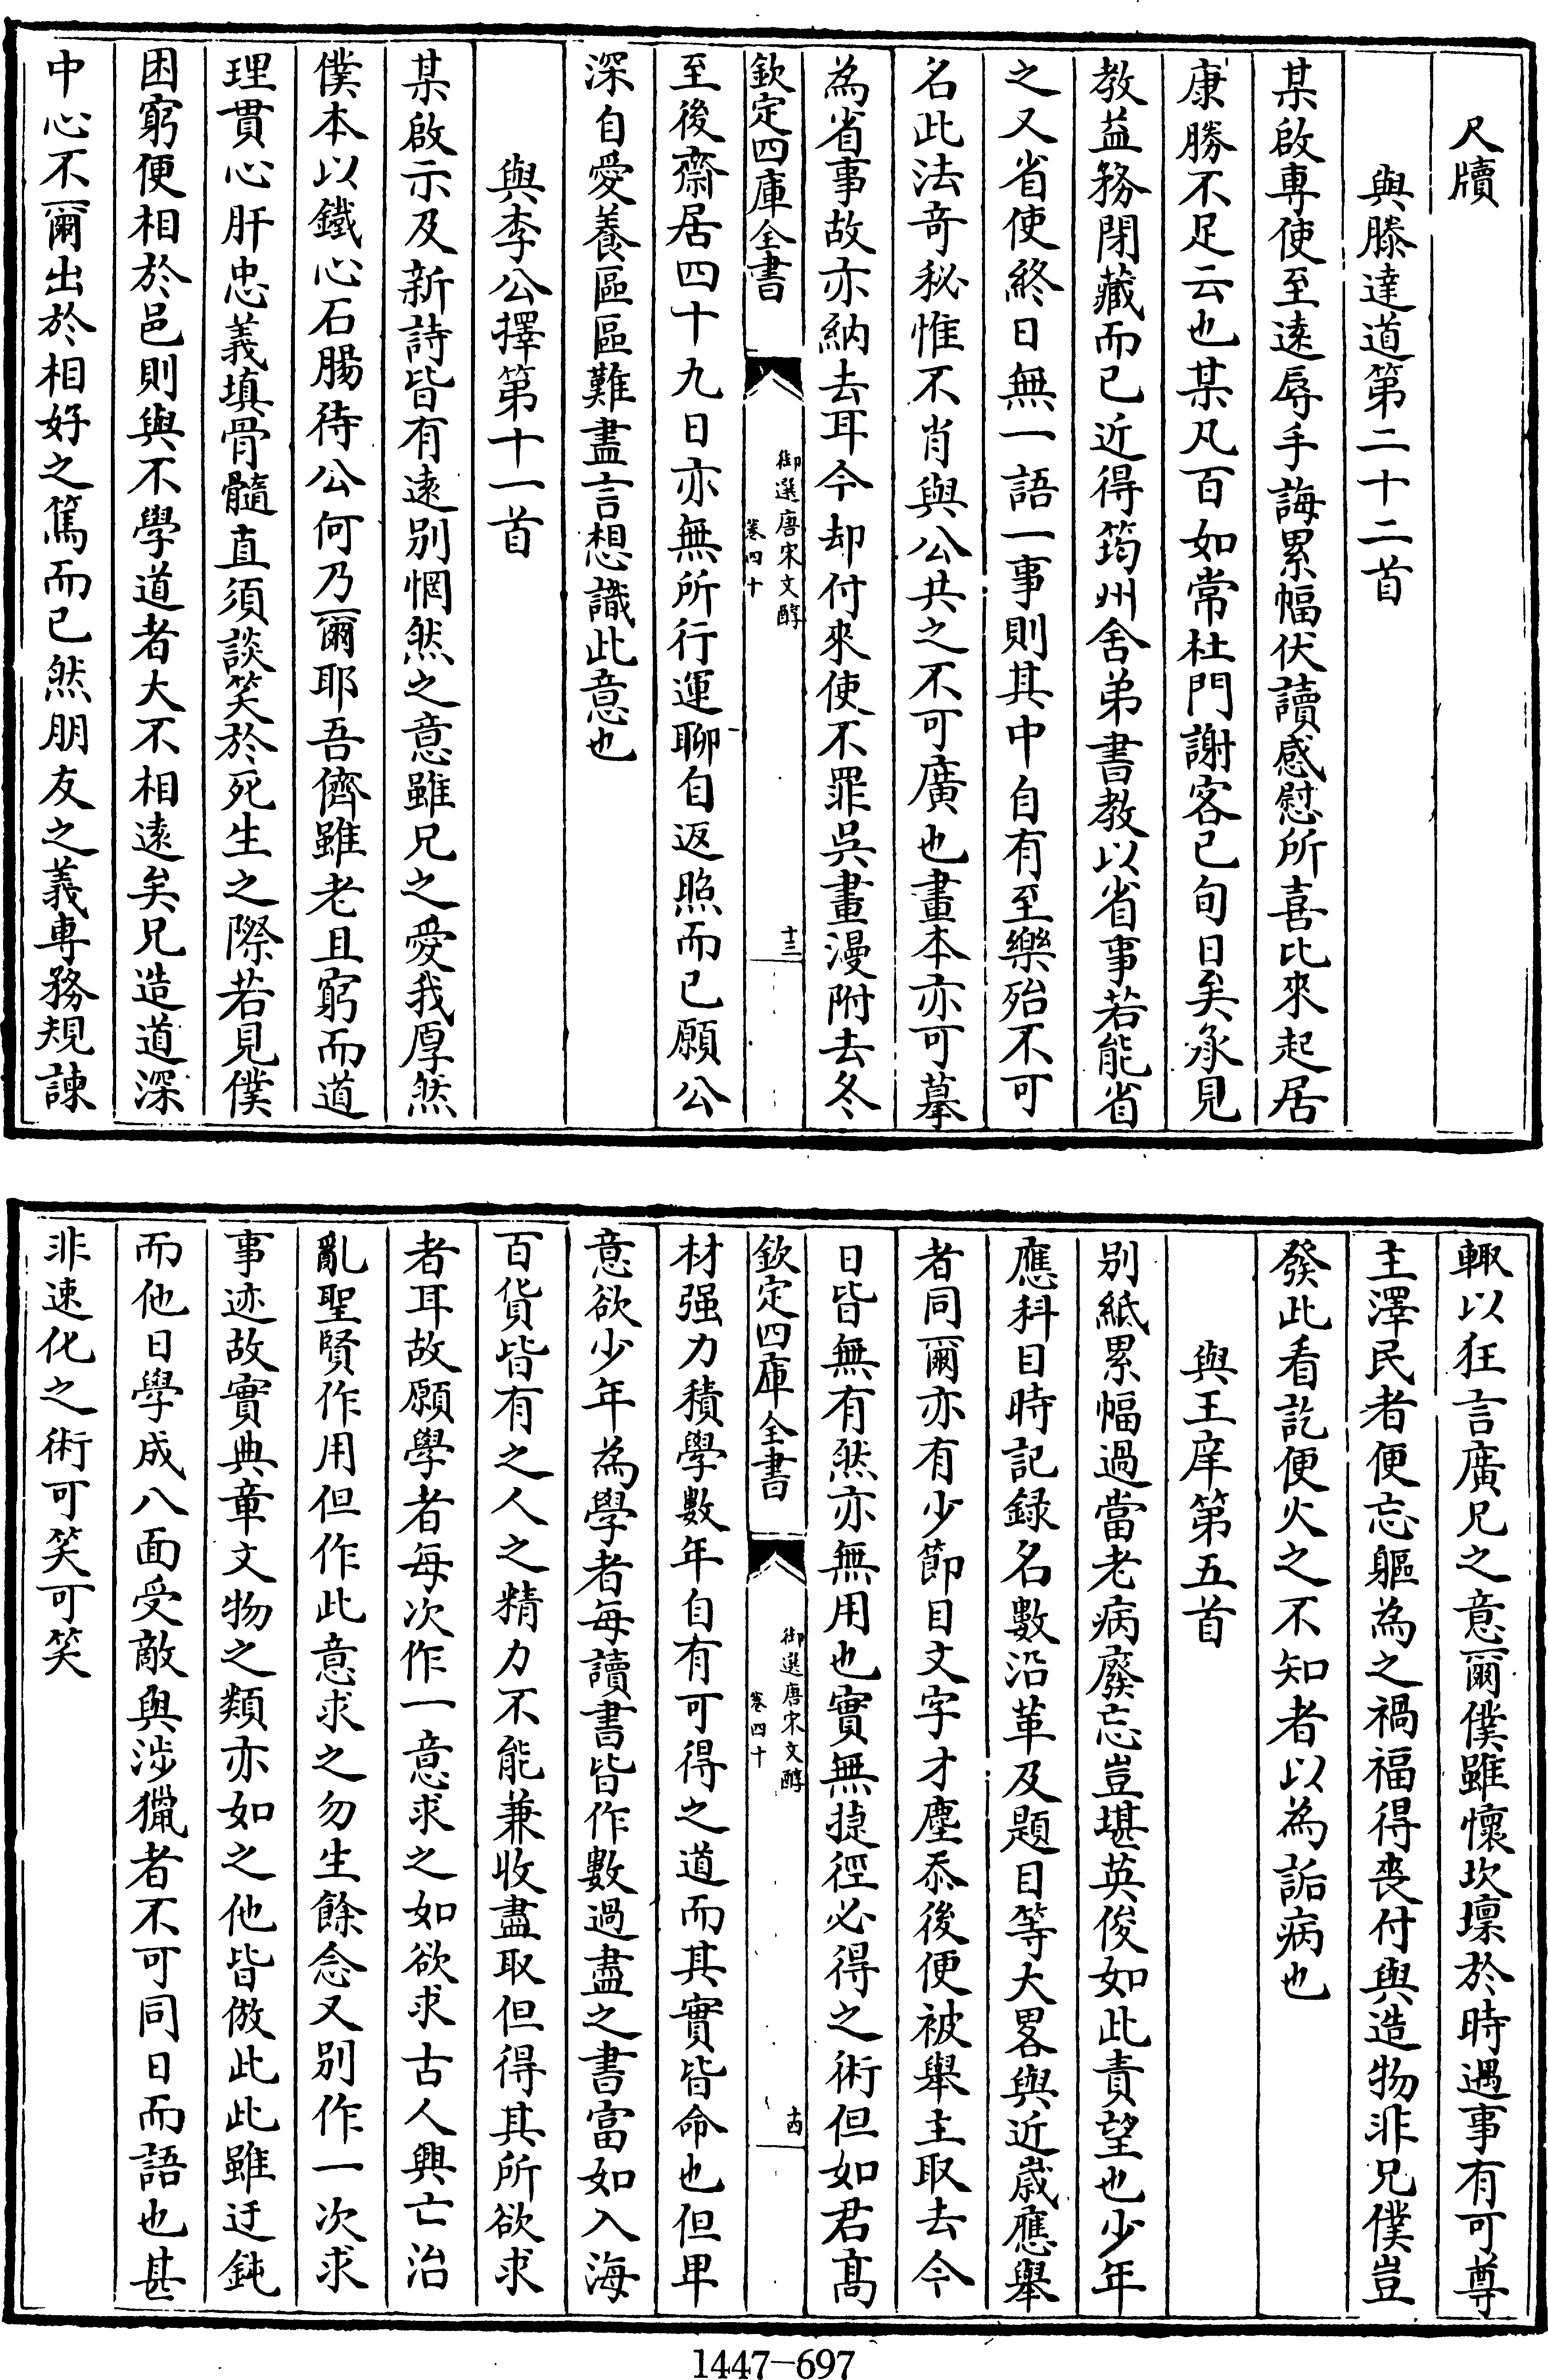 尺牘
與滕達道第二十二首
某啟専使至逺辱手誨累幅伏讀感慰所喜比來起居
康勝不足云也某凡百如常杜門謝客已旬日矣承見
教益務閉藏而已近得筠州舍弟書教以省事若能省
之又省使終日無一語一事則其中自有至樂殆不可
名此法奇秘惟不肖與公共之不可廣也畫本亦可摹
為省事故亦納去耳今却付來使不罪吳畫漫附去冬
欽定四庫全書
御選唐宋文醇
卷四十
十三
至後齋居四十九日亦無所行運聊自返照而已願公
深自愛養區區難盡言想識此意也
與李公擇第十一首
某啟示及新詩皆有逺别惘然之意雖兄之愛我厚然
僕本以鐵心石腸待公何乃爾耶吾儕雖老且窮而道
理貫心肝忠義填骨髓直須談笑於死生之際若見僕
困窮便相於邑則與不學道者大不相逺矣兄造道深
中心不爾出於相好之篤而已然朋友之義專務規諫
輒以狂言廣兄之意爾僕雖懷坎壈於時遇事有可尊
主澤民者便忘軀為之禍福得喪付與造物非兄僕豈
發此看訖便火之不知者以為詬病也
與王庠第五首
别紙累幅過當老病廢忘豈堪英俊如此責望也少年
應科目時記録名數沿革及題目等大畧與近嵗應舉
者同爾亦有少節目文字才塵忝後便被舉主取去今
日皆無有然亦無用也實無捷徑必得之術但如君髙
欽定四庫全書
御選唐宋文醇
卷四十
十四
材强力積學數年自有可得之道而其實皆命也但卑
意欲少年為學者每讀書皆作數過盡之書富如入海
百貨皆有之人之精力不能兼收盡取但得其所欲求
者耳故願學者每次作一意求之如欲求古人興亡治
亂聖賢作用但作此意求之勿生餘念又别作一次求
事迹故實典章文物之類亦如之他皆倣此此雖迂鈍
而他日學成八面受敵與渉獵者不可同日而語也甚
非速化之術可笑可笑
1447-697